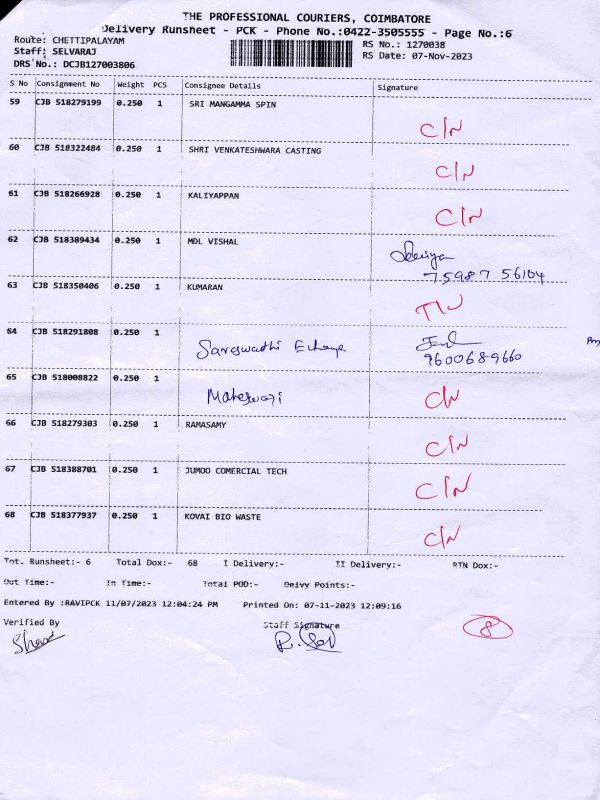 THE PROFESSIONAL COURIERS, COIMBATORE
Delivery Runsheet - PCK - Phone No.:0422-3505555 - Page No.:6
Route: CHETTIPALAYAM
Staff: SELVARAJ
DRS No.: DCJB127003806
RS No.: 1270038
RS Date: 07-Nov-2023
S No Consignment No Weight PCS Consignee Details Signature
59 CJB 518279199 0.250 1 SRI MANGAMMA SPIN C/N
60 CJB 518322484 0.250 1 SHRI VENKATESHWARA CASTING C/N
61 CJB 518266928 0.250 1 KALIYAPPAN C/N
62 CJB 518389434 0.250 1 MDL VISHAL
75987 56104
63 CJB 518350406 0.250 1 KUMARAN
64 CJB 518291808 0.250 1 Sareswathi
9600689660
65 CJB 518008822 0.250 1 Maheswari C/N
66 CJB 518279303 0.250 1 RAMASAMY C/N
67 CJB 518388701 0.250 1 JUMOO COMERCIAL TECH C/N
68 CJB 518377937 0.250 1 KOVAI BIO WASTE C/N
Tot. Runsheet:- 6 Total Dox:- 68 I Delivery:- II Delivery:- RTN Dox:-
Out Time:- In Time:- Total POD:- Delvy Points:-
Entered By :RAVIPCK 11/07/2023 12:04:24 PM Printed On: 07-11-2023 12:09:16
Verified By Staff Signature
8